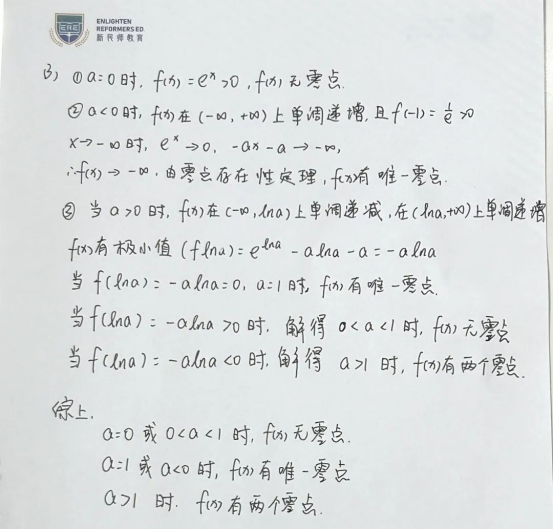 ENLIGHTEN
REFORMERS ED
新民师教育
ERE
3) ① a=0时, f(x)=eˣ>0, f(x)无零点.
② a<0时, f(x)在(-∞, +∞)上单调递增, 且f(-1)=1/e>0
x→-∞时, eˣ→0, -ax-a→-∞,
∴f(x)→-∞. 由零点存在性定理, f(x)有唯一零点.
③ 当a>0时, f(x)在(-∞, lna)上单调递减, 在(lna,+∞)上单调递增
f(x)有极小值(f lna)=e^lna -alna-a=-alna
当f(lna)=-alna=0, a=1时, f(x)有唯一零点.
当f(lna)=-alna>0时, 解得 0<a<1时, f(x)无零点
当f(lna)=-alna<0时, 解得 a>1时, f(x)有两个零点.
综上.
a=0或0<a<1时, f(x)无零点.
a=1或a<0时, f(x)有唯一零点
a>1 时. f(x)有两个零点.